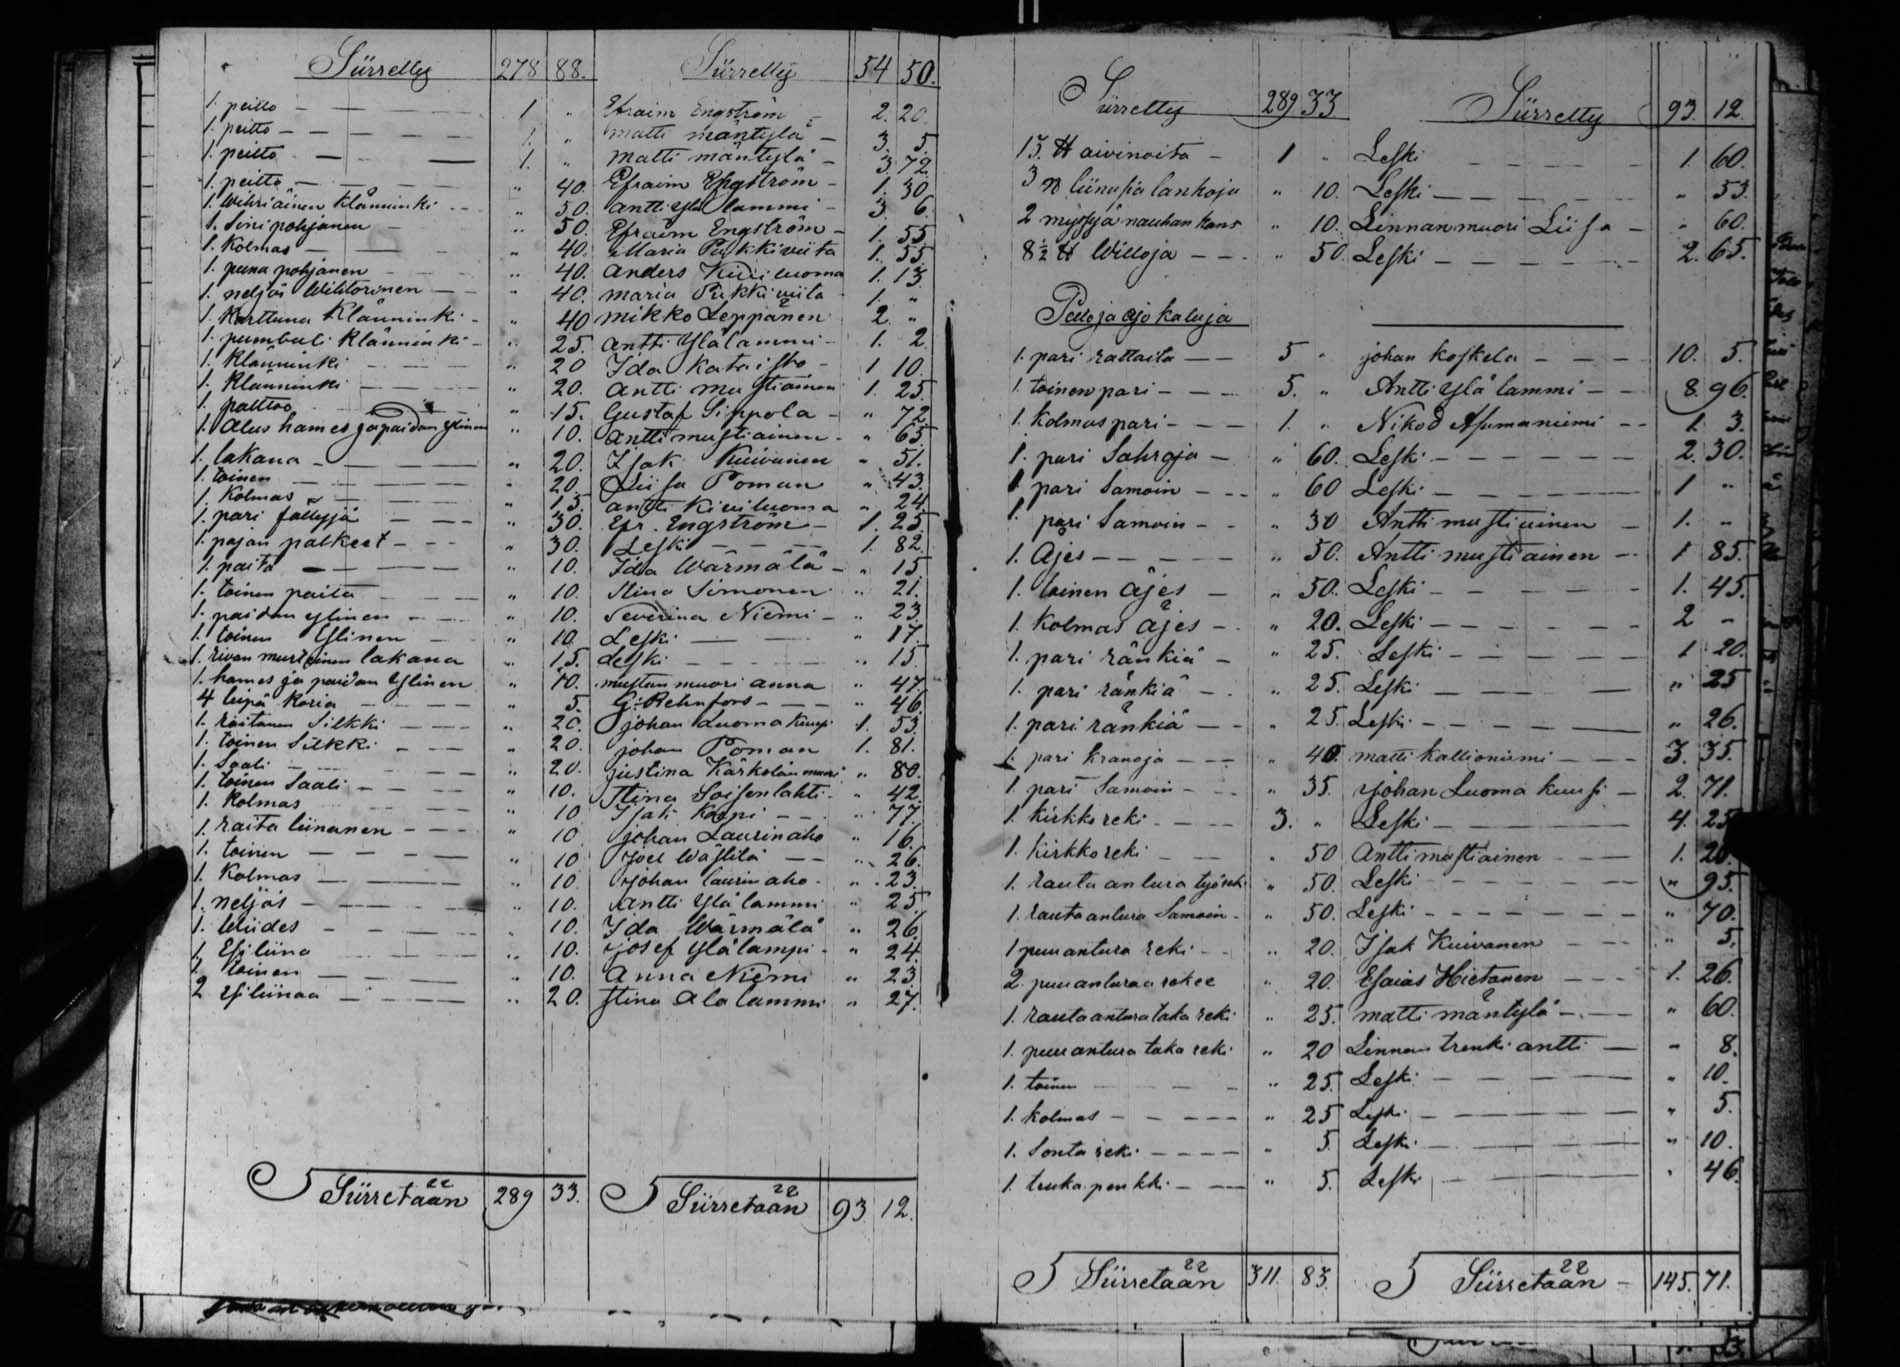 Siirretty 278 88. Siirretty 54 50.
1. peitto 1 " Efraim Engström 2. 20.
1. peitto 1. " Matti mäntylä 3. 5.
1. peitto 1. " Matti mäntylä 3. 72.
1. peitto " 40. Efraim Engström 1. 30
1. Wihriäinen klänninki " 50. antti Ylä lammi 3. 6.
1. Sinipohjanen " 50. Efraim Engström 1. 55
1. Kolmas " 40. Maria Pukkiviita 1. 55
1. puna pohjanen " 40. Anders Kiviluoma 1. 13.
1. neljäs Wiktorinen " 40. maria Pukkiviita 1. "
1. Karttuna Klänninki " 40 mikko Leppänen 2. "
1. pumbuli klänninki " 25. Antti Ylälammi 1. 2.
1. Klänninki " 20 Ida Kataisto 1 10.
1. Klänninki " 20. Antti mustiainen 1. 25.
1. palttoo " 15. Gustaf Sippola " 72
1. Alus hames ja paidan Ylinen " 10. antti mustiainen " 65.
1. lakana " 20. Isak Kuivanen " 51.
1. toinen " 20. Liisa Poman " 43.
1. Kolmas " 15. antti Kiviluoma " 24.
1. pari fällyjä " 30. Efr. Engström 1. 25.
1. pajan palkeet " 30. Leski 1. 82.
1. paita " 10. Ida Wärmälä " 15
1. toinen paita " 10. Stina Simonen " 21.
1. paidan ylinen " 10. Severina Niemi " 23.
1. toinen Ylinen " 10. Leski " 17.
1. rivan murtoinen lakana " 15. Leski " 15
1. hames ja paidan Ylinen " 10. mustan muori anna " 47
4 leipä Koria " 5. G. Rehnfors " 46.
1. rästanen Silkki " 20. johan Luoma kuusi 1. 53.
1. toinen Silkki " 20. johan Poman 1. 81.
1. Saali " 20. justina Kärkolän muori " 80.
1. toinen Saali " 10. Stina Soisenlahti " 42.
1. Kolmas " 10 Isak Koppi " 77.
1. raita liinanen " 10. johan Laurinaho " 16.
1. toinen " 10 Joel Wästilä " 26.
1. Kolmas " 10. johan laurinaho " 23.
1. neljäs " 10. Antti Ylälammi " 25
1. Wiides " 10. Ida Wärmälä " 26.
1. Esiliina " 10. josef Ylälampi " 24.
1. toinen " 10. Anna Niemi " 23
2 Esiliinaa " 20. Stina Alalammi " 27.
Siirretään 289 33. Siirretään 93 12.
Siirretty 289 33 Siirretty 93. 12.
13. ℔ aivinoita 1 " Leski 1. 60.
3 ℔ liinasia lankoja " 10. Leski " 53
2 myssyä nauhan kans " 10. Linnan muori Liisa " 60.
8½ ℔ Willoja " 50. Leski 2. 65.
Pelto ja ajo kaluja
1. pari rattaita 5 " johan koskela 10. 5.
1. toinen pari 5. " Antti Ylä lammi 8. 96.
1. Kolmas pari 1. " Nikod Asumaniemi 1. 3.
1. pari Sahroja " 60. Leski 2. 30.
1 pari Samoin " 60 Leski 1 "
1. pari Samoin " 30 Antti mustiainen 1. "
1. Ajes " 50. Antti mustiainen 1 85.
1. toinen äjes " 50. Leski 1. 45.
1. Kolmas äjes " 20. Leski 2 "
1. pari ränkiä " 25. Leski 1 20.
1. pari ränkiä " 25. Leski " 25
1. pari ränkiä " 25. Leski " 26.
1. pari kranoja " 40. matti kallioniemi 3. 35.
1. pari Samoin " 35. johan Luoma kuusi 2. 71.
1. kirkko reki 3. " Leski 4. 25
1. kirkko reki " 50 Antti mustiainen 1. 20.
1. rauta antura työreki " 50. Leski " 95.
1. rauta antura Samoin " 50. Leski " 70.
1 puu antura reki " 20. Isak Kuivanen " 5.
2 puu anturaa rekee " 20. Esaias Hietanen 1. 26.
1. rauta antura taka reki " 25. matti mäntylä " 60.
1. puu antura taka reki " 20 Linnan trenki antti " 8.
1. toinen " 25. Leski " 10.
1. kolmas " 25 Leski " 5.
1. Sonta reki " 5. Leski " 10.
1. tuuka penkki " 5. Leski " 46.
Siirretään 311. 83. Siirretään 145. 71.